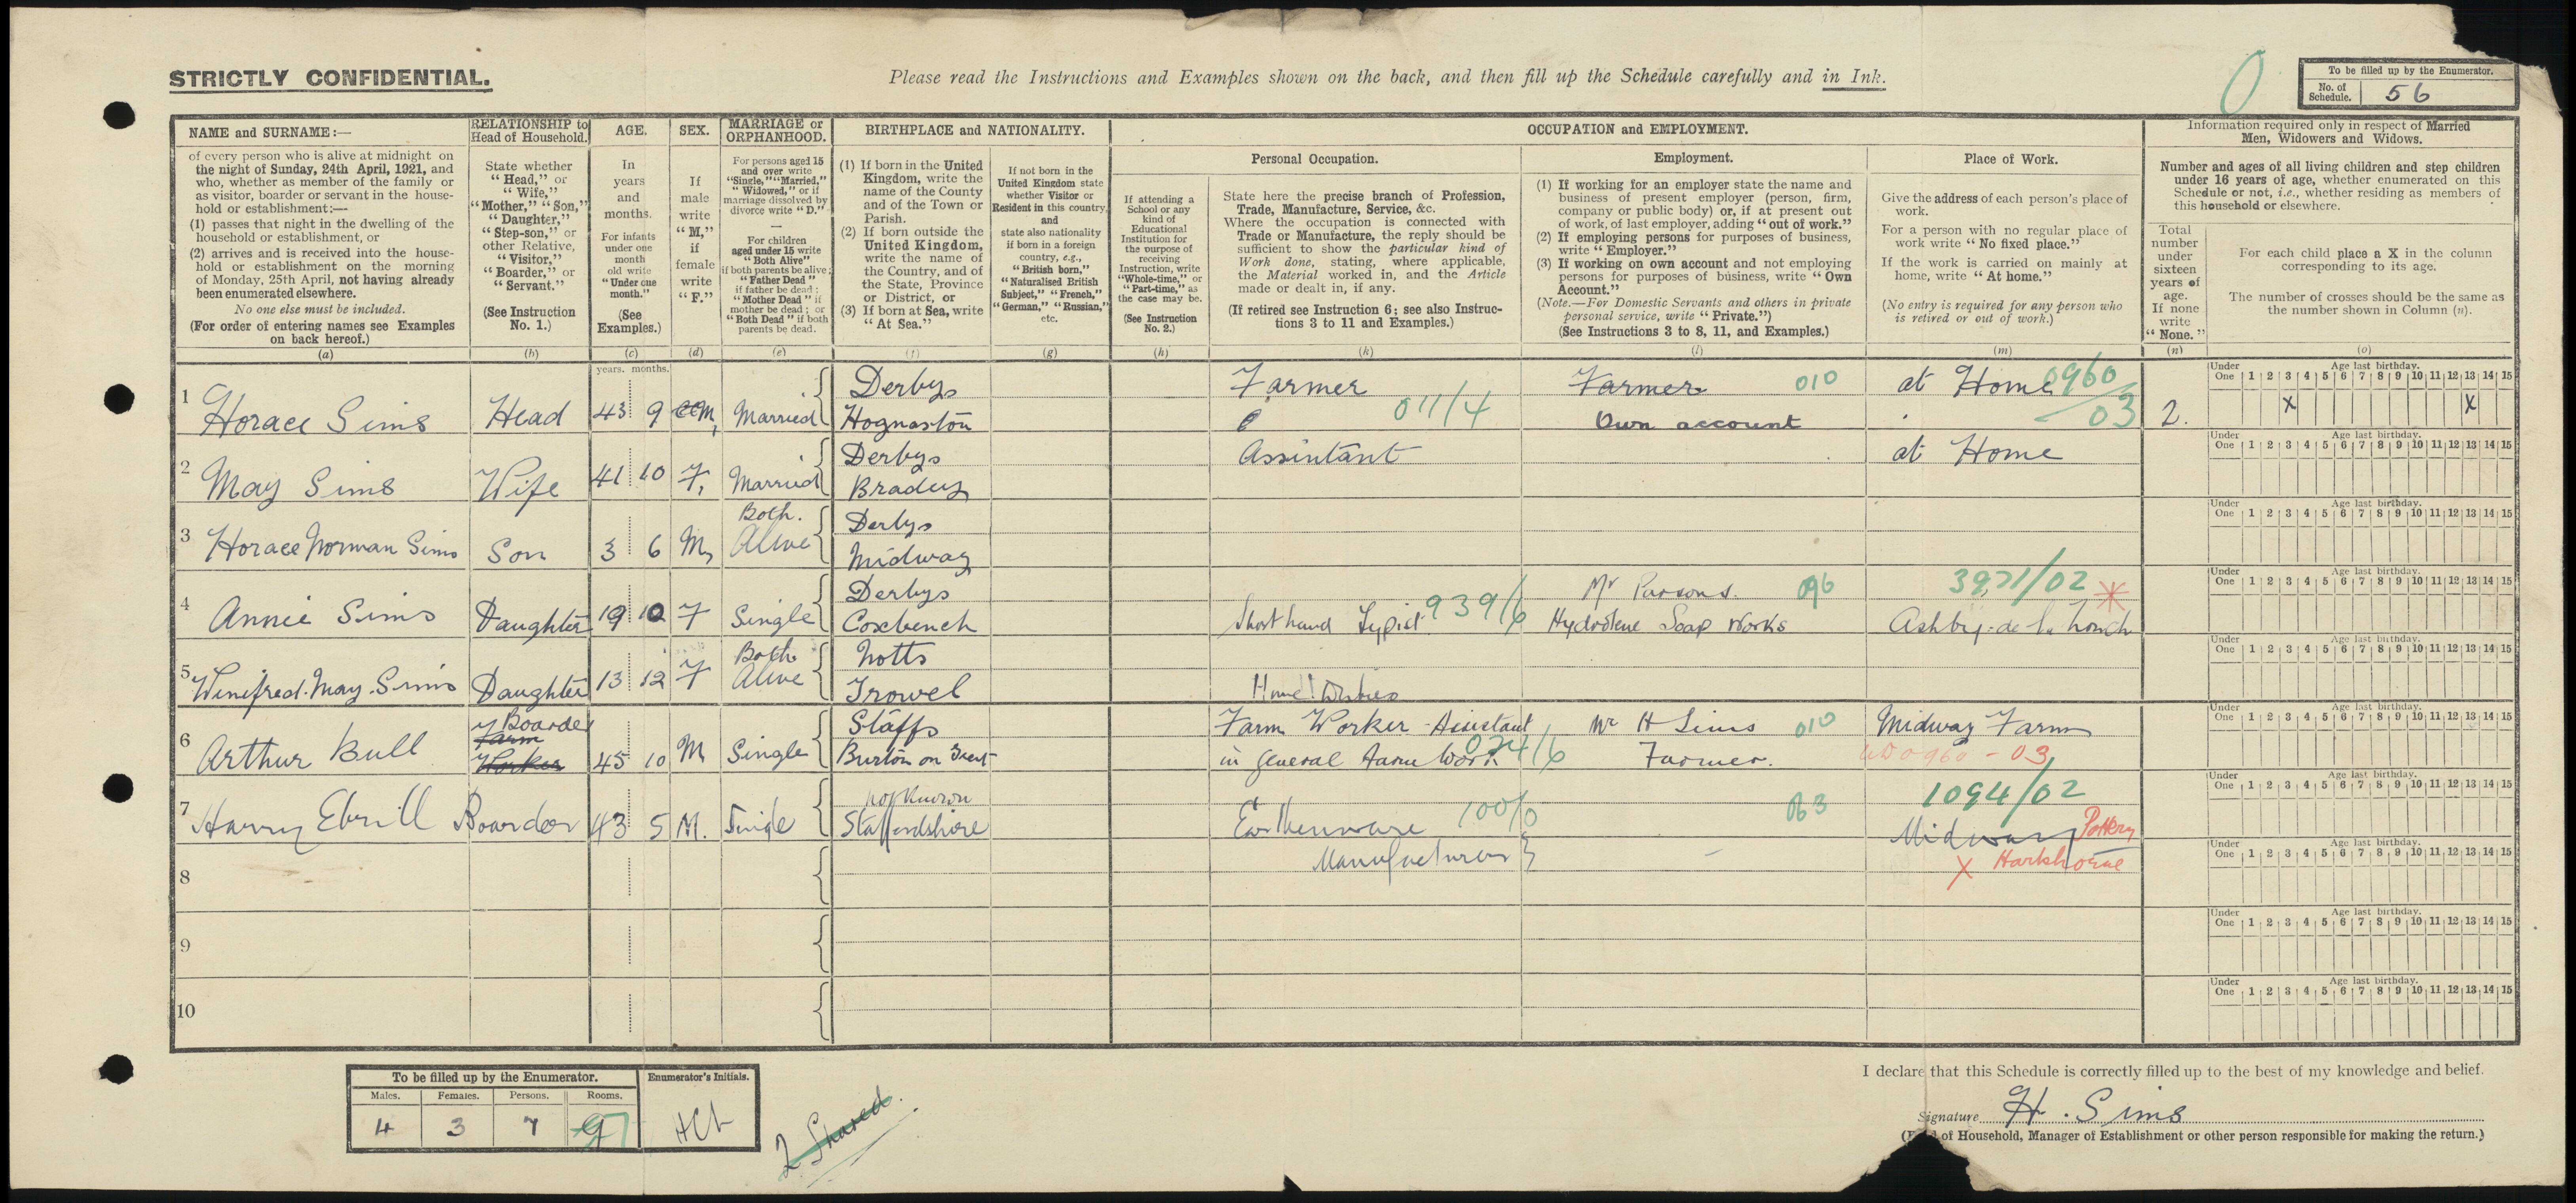 STRICTLY CONFIDENTIAL.
Please read the Instructions and Examples shown on the back, and then fill up the Schedule carefully and in Ink.
0
To be filled up by the Enumerator.
No. of Schedule. 56
NAME and SURNAME:—
of every person who is alive at midnight on
the night of Sunday, 24th April, 1921, and
who, whether as member of the family or
as visitor, boarder or servant in the house-
hold or establishment:—
(1) passes that night in the dwelling of the
household or establishment, or
(2) arrives and is received into the house-
hold or establishment on the morning
of Monday, 25th April, not having already
been enumerated elsewhere.
No one else must be included.
(For order of entering names see Examples
on back hereof.)
(a)
RELATIONSHIP to
Head of Household.
State whether
"Head," or
"Wife,"
"Mother," "Son,"
"Daughter,"
"Step-son," or
other Relative,
"Visitor,"
"Boarder," or
"Servant."
(See Instruction
No. 1.)
(b)
AGE.
In
years
and
months.
For infants
under one
month
old write
"Under one
month."
(See
Examples.)
(c)
SEX.
If
male
write
"M,"
if
female
write
"F."
(d)
MARRIAGE or
ORPHANHOOD.
For persons aged 15
and over write
"Single," "Married,"
"Widowed," or if
marriage dissolved by
divorce write "D."
—
For children
aged under 15 write
"Both Alive"
if both parents be alive;
"Father Dead"
if father be dead;
"Mother Dead" if
mother be dead; or
"Both Dead" if both
parents be dead.
(e)
BIRTHPLACE and NATIONALITY.
(1) If born in the United
Kingdom, write the
name of the County
and of the Town or
Parish.
(2) If born outside the
United Kingdom,
write the name of
the Country, and of
the State, Province
or District, or
(3) If born at Sea, write
"At Sea."
(f)
If not born in the
United Kingdom state
whether Visitor or
Resident in this country,
and
state also nationality
if born in a foreign
country, e.g.,
"British born,"
"Naturalised British
Subject," "French,"
"German," "Russian,"
etc.
(g)
OCCUPATION and EMPLOYMENT.
If attending a
School or any
kind of
Educational
Institution for
the purpose of
receiving
Instruction, write
"Whole-time," or
"Part-time," as
the case may be.
(See Instruction
No. 2.)
(h)
Personal Occupation.
State here the precise branch of Profession,
Trade, Manufacture, Service, &c.
Where the occupation is connected with
Trade or Manufacture, the reply should be
sufficient to show the particular kind of
Work done, stating, where applicable,
the Material worked in, and the Article
made or dealt in, if any.
(If retired see Instruction 6; see also Instruc-
tions 3 to 11 and Examples.)
(k)
Employment.
(1) If working for an employer state the name and
business of present employer (person, firm,
company or public body) or, if at present out
of work, of last employer, adding "out of work."
(2) If employing persons for purposes of business,
write "Employer."
(3) If working on own account and not employing
persons for purposes of business, write "Own
Account."
(Note.—For Domestic Servants and others in private
personal service, write "Private.")
(See Instructions 3 to 8, 11, and Examples.)
(l)
Place of Work.
Give the address of each person's place of
work.
For a person with no regular place of
work write "No fixed place."
If the work is carried on mainly at
home, write "At home."
(No entry is required for any person who
is retired or out of work.)
(m)
Information required only in respect of Married
Men, Widowers and Widows.
Number and ages of all living children and step children
under 16 years of age, whether enumerated on this
Schedule or not, i.e., whether residing as members of
this household or elsewhere.
Total
number
under
sixteen
years of
age.
If none
write
"None."
(n)
For each child place a X in the column
corresponding to its age.
The number of crosses should be the same as
the number shown in Column (n).
(o)
years. months.
1 Horace Sims Head 43 9 M, Married Derbys Hognaston Farmer 011/4 Farmer 010 Own account at Home 0960/03 2.
Under One Age last birthday. 1 2 3 4 5 6 7 8 9 10 11 12 13 14 15
X X
2 May Sims Wife 41 10 F, Married Derbys Assintant at Home
Under One Age last birthday. 1 2 3 4 5 6 7 8 9 10 11 12 13 14 15
3 Horace Norman Sims Son 3 6 M, Both. Alive Derbys Midway
Under One Age last birthday. 1 2 3 4 5 6 7 8 9 10 11 12 13 14 15
4 Annie Sims Daughter 19 10 F Single Derbys Coxbench Shorthand Typist 939/6 Mr Parsons. 096 Soap Works 3921/02 Ashby-de-la-Zouch
Under One Age last birthday. 1 2 3 4 5 6 7 8 9 10 11 12 13 14 15
5 Winifred May Sims Daughter 13 12 F Both Alive Notts Trowel Home Duties
Under One Age last birthday. 1 2 3 4 5 6 7 8 9 10 11 12 13 14 15
6 Arthur Bull Boarder Farm Worker 45 10 M Single Staffs Burton on Trent Farm Worker - Assistant in general Farm Work 024/6 Mr H Sims Farmer. 010 Midway Farm 0960 - 03
Under One Age last birthday. 1 2 3 4 5 6 7 8 9 10 11 12 13 14 15
7 Harry Ebrill Boarder 43 5 M. Single not known Staffordshire Earthenware Manufacturer 100/0 063 1094/02 Midway Pottery X Hartshorne
Under One Age last birthday. 1 2 3 4 5 6 7 8 9 10 11 12 13 14 15
8
Under One Age last birthday. 1 2 3 4 5 6 7 8 9 10 11 12 13 14 15
9
Under One Age last birthday. 1 2 3 4 5 6 7 8 9 10 11 12 13 14 15
10
Under One Age last birthday. 1 2 3 4 5 6 7 8 9 10 11 12 13 14 15
To be filled up by the Enumerator.
Males. Females. Persons. Rooms.
4 3 7
Enumerator's Initials.
HCL
2 Shared.
I declare that this Schedule is correctly filled up to the best of my knowledge and belief.
Signature H. Sims
of Household, Manager of Establishment or other person responsible for making the return.)